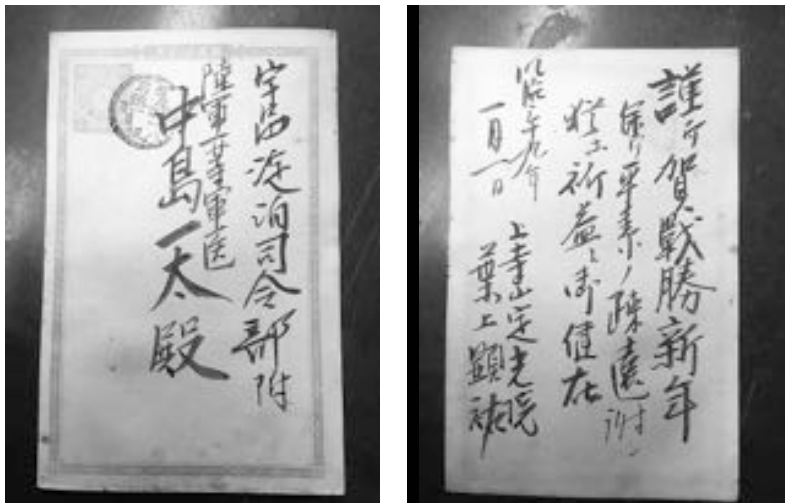 宇品碇泊司令部附
陸軍一等軍医
中島一太殿
謹而賀戦勝新年
併テ平素ノ疎遠謝シ
祈益々御健在
明治二十九年
一月一日
上寺山定光院
葉上顕祐